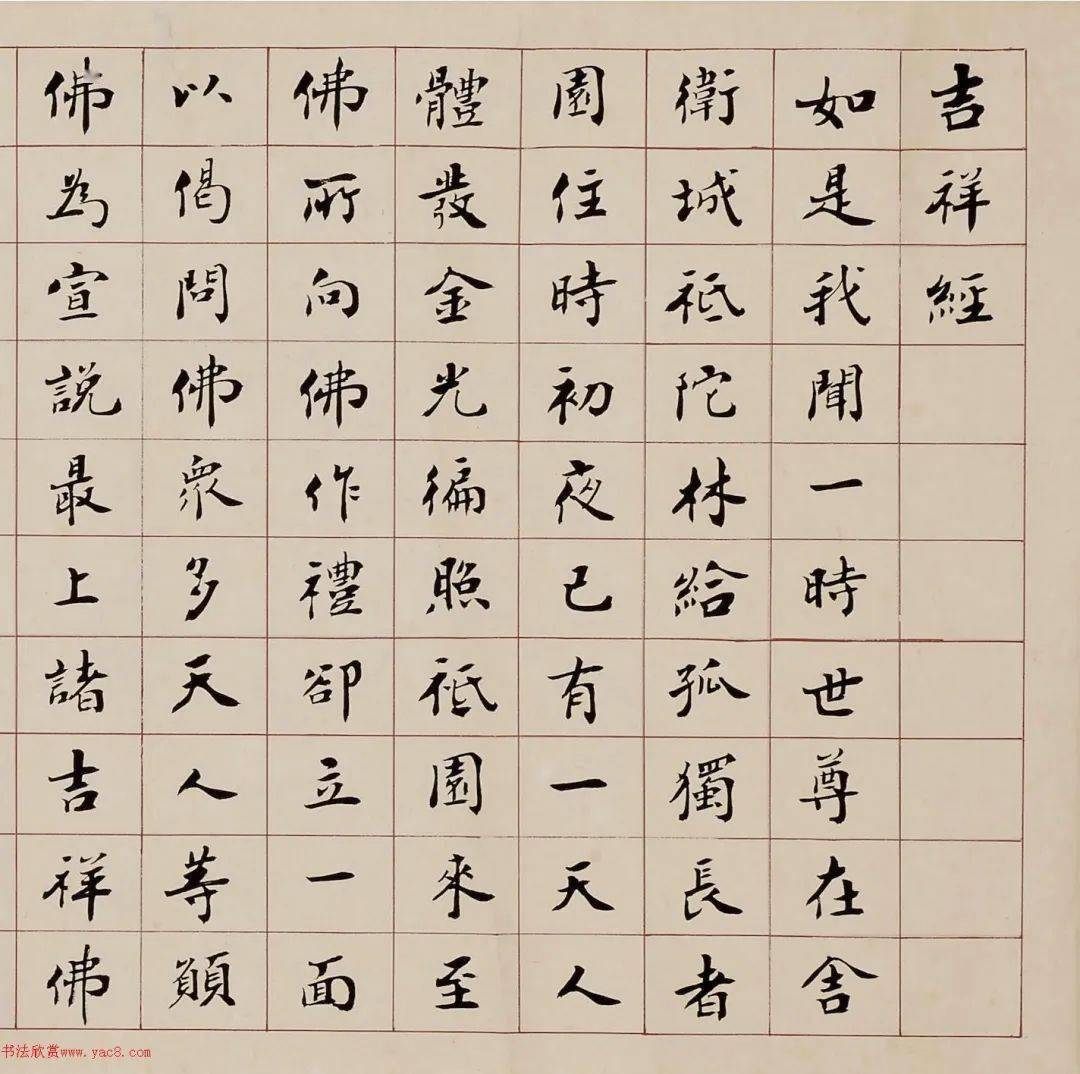 吉祥經
如是我聞一時世尊在舍
衛城祇陀林給孤獨長者
園住時初夜已有一天人
體發金光徧照祇園來至
佛所向佛作禮卻立一面
以偈問佛眾多天人等願
佛為宣說最上諸吉祥佛
书法欣赏www.yac8.com